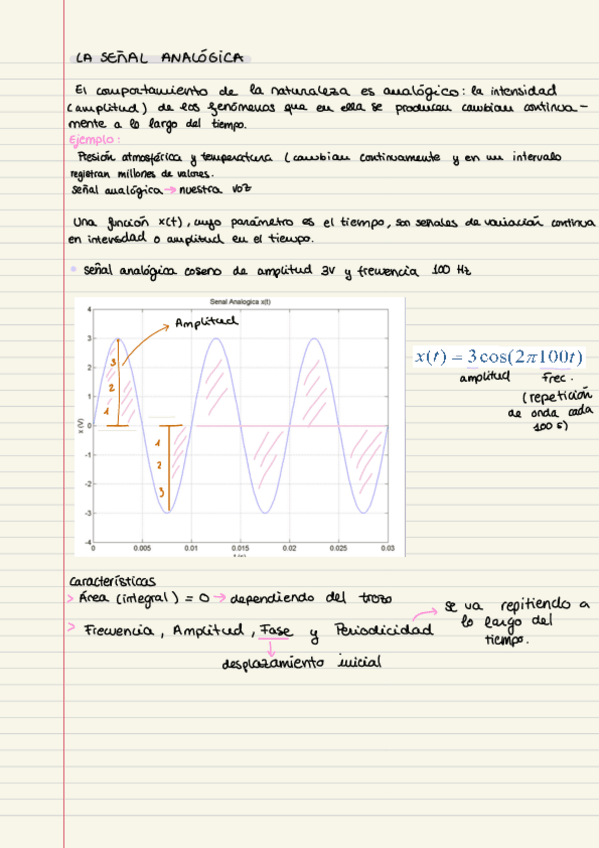 LA SEÑAL ANALÓGICA
El comportamiento de la naturaleza es analógico: la intensidad
(amplitud) de los fenómenos que en ella se producen cambian continua-
mente a lo largo del tiempo.
Ejemplo:
Presión atmosférica y temperatura (cambian continuamente y en un intervalo
registran millones de valores.
señal analógica → nuestra voz
Una función x(t), cuyo parámetro es el tiempo, son señales de variación continua
en intensidad o amplitud en el tiempo.
• señal analógica coseno de amplitud 3V y frecuencia 100 Hz
Senal Analogica x(t)
Amplitud
x (V)
4
3
2
1
0
-1
-2
-3
-4
3
2
1
1
2
3
0 0.005 0.01 0.015 0.02 0.025 0.03
x(t) = 3cos(2π100t)
amplitud Frec.
(repetición
de onda cada
100 s)
características
> Área (integral) = 0 → dependiendo del trozo
> Frecuencia, Amplitud, Fase y Periodicidad
se va repitiendo a
lo largo del
tiempo.
desplazamiento inicial